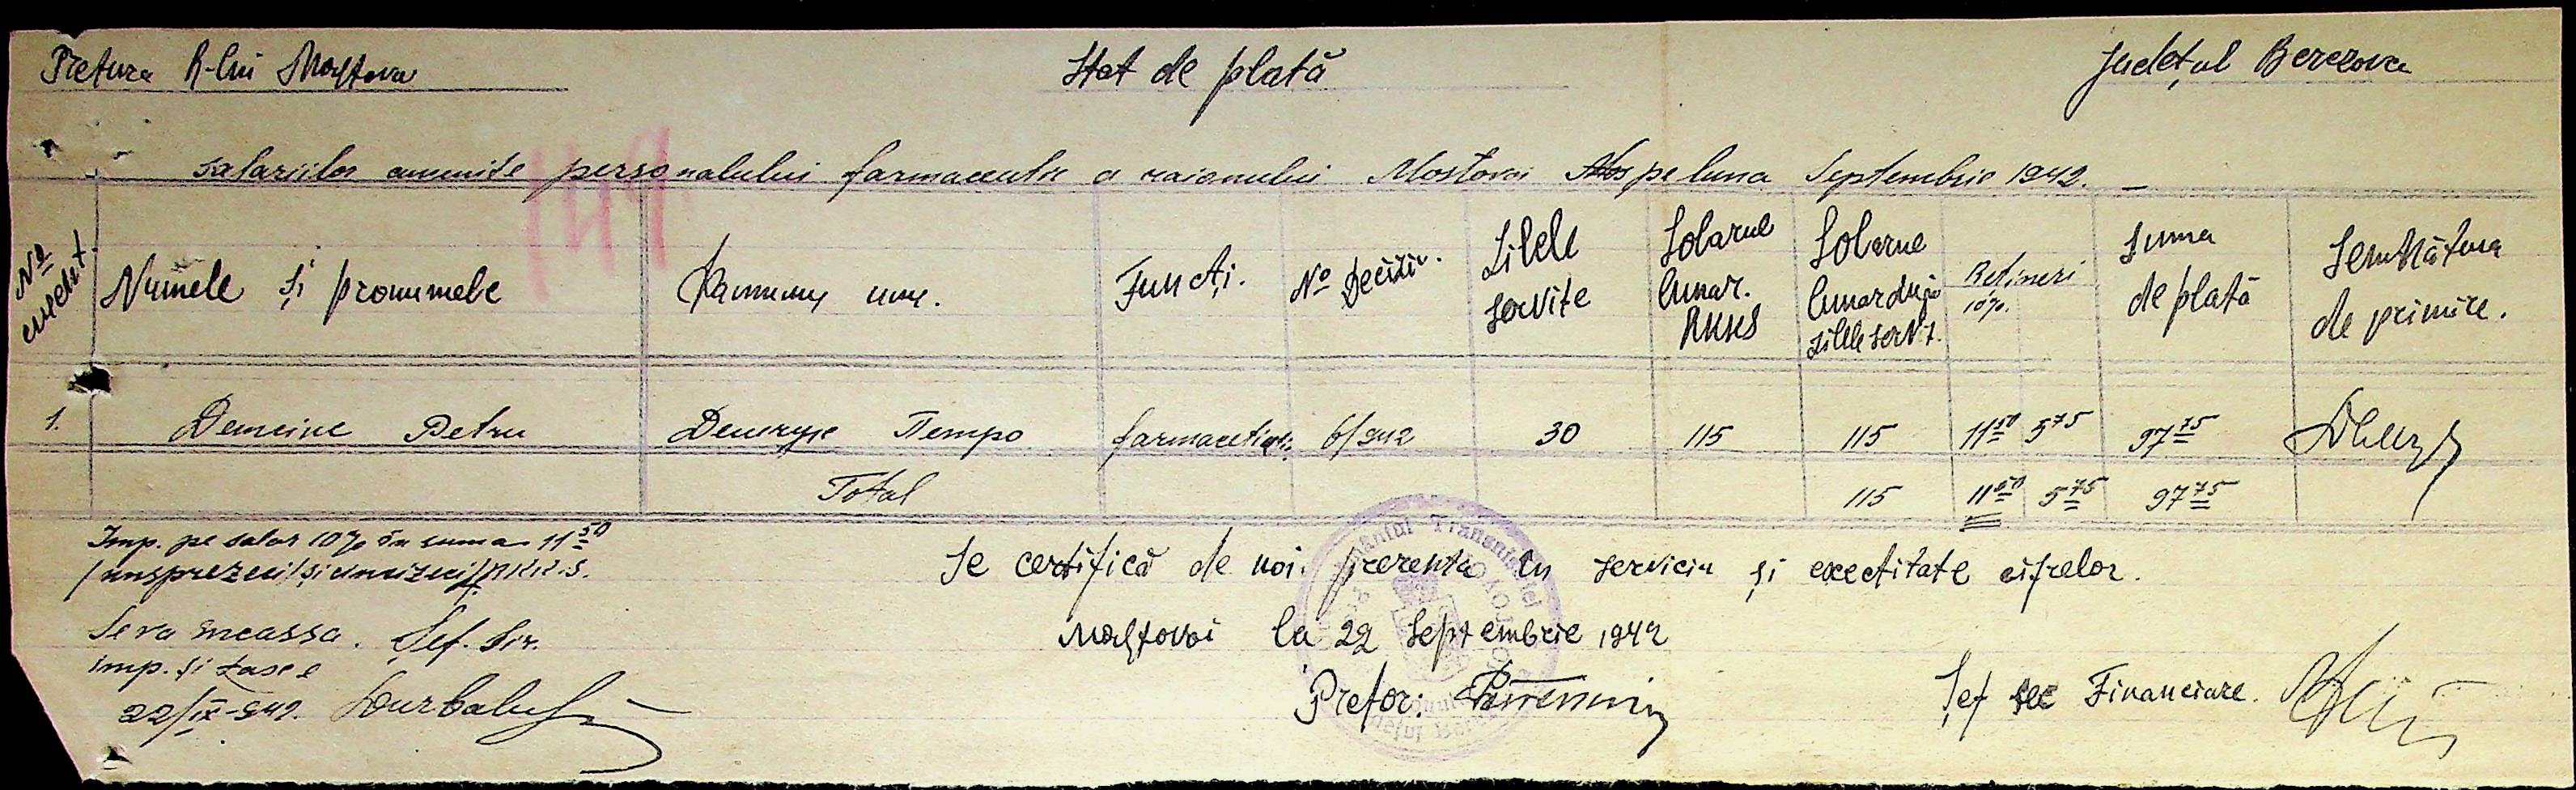 Pretura R-lui Mostova
Stat de plată
Județul Berezovca
salariilor cuvenite personalului farmaceutic a raionului Mostovoi pe luna Septembrie 1942. —
149
No curent.
Numele și pronumele
Funcți.
No Decizi.
Zilele servite
Solarul lunar. RKKS
Solarue lunar după zilele servit.
Rețineri 10%.
Suma de plată
Semnătura de primire.
1. Petru Петро farmacetist 6/942 30 115 115 11 50 5 75 97 75
Total 115 11 50 5 75 97 75
Imp. pe salar 10% în suma 11 50
/unsprezeci/și cincizeci/ RKKS.
Se va incassa. Șef. Sir.
imp. și taxe
22/IX-942.
Se certifică de noi prezenta în serviciu și exectitate cifrelor.
Mostovoi la 22 Septembrie 1942
Pretor:
Șef sec Financiare.